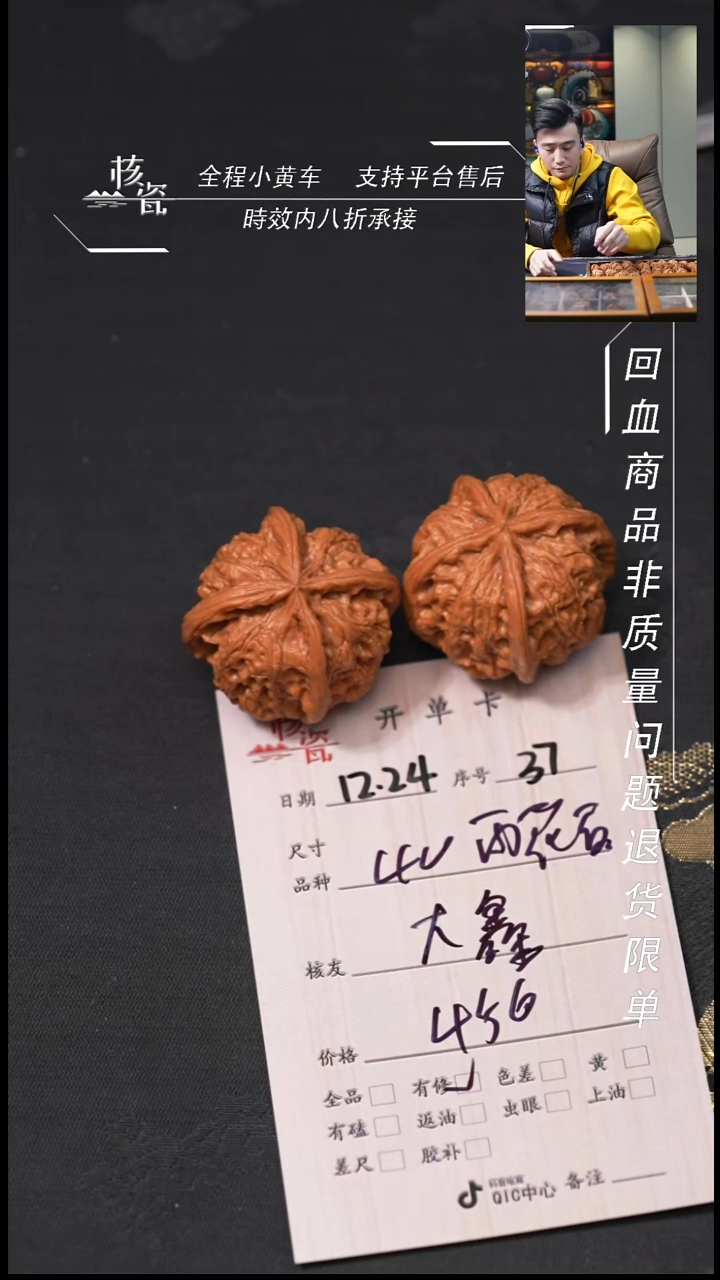 核瓷
全程小黄车 支持平台售后
時效内八折承接
回血商品非质量问题退货限单
核瓷
开单卡
日期 12.24 序号 37
尺寸
品种
大鑫
核友
456
价格
全品 有修 色差 黄
有磕 返油 虫眼 上油
差尺 胶补
抖音电商
QIC中心 备注